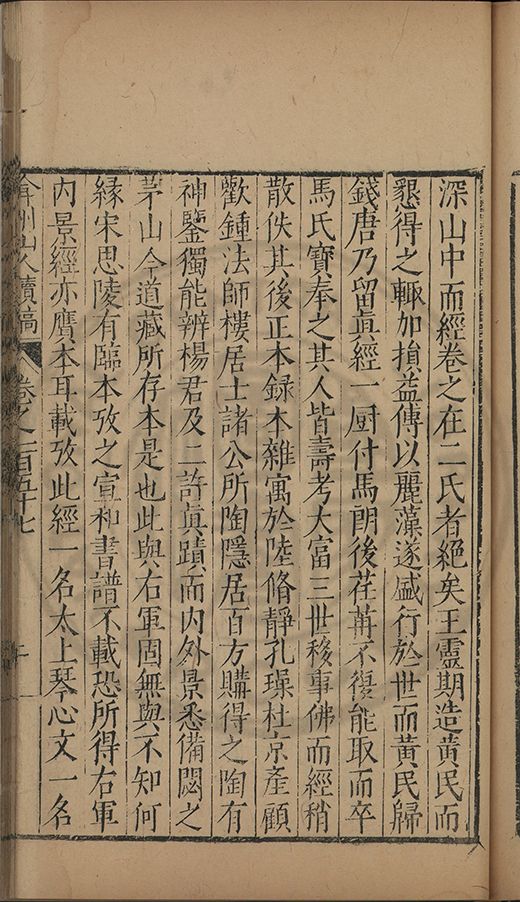 深山中而經卷之在二氏者絕矣王靈期造黃民而
懇得之輙加損益傳以麗藻遂盛行於世而黃民歸
錢唐乃留眞經一厨付馬朗後荏苒不復能取而卒
馬氏寶奉之其人皆壽考大富三世移事佛而經稍
散佚其後正本録本雜寓於陸脩靜孔璪杜京產顧
歡鍾法師樓居士諸公所陶隱居百方購得之陶有
神鑒獨能辨楊君及二許眞蹟而內外景悉備閟之
茅山今道藏所存本是也此與右軍固無與不知何
緣宋思陵有臨本攷之宣和書譜不載恐所得右軍
內景經亦贋本耳載攷此經一名太上琴心文一名
弇州山人續稿 卷之一百五十七